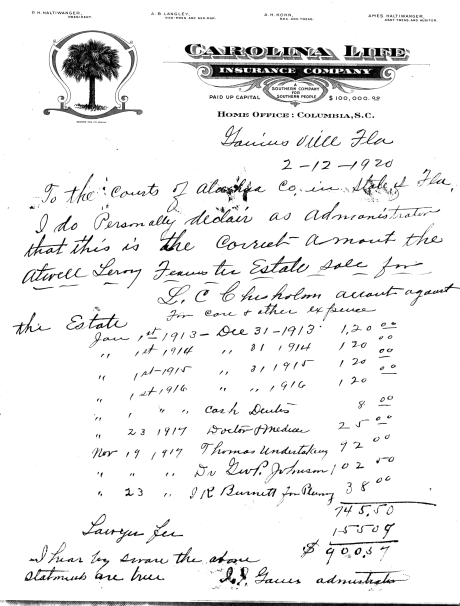 P. H. HALTIWANGER, PRESIDENT.
A. B. LANGLEY,
A. H. KOHN, SEC. AND TREAS.
AMES HALTIWANGER, ASST TREAS. AND AUDITOR.
CAROLINA LIFE
INSURANCE COMPANY
A SOUTHERN COMPANY FOR SOUTHERN PEOPLE
PAID UP CAPITAL $100,000.00
HOME OFFICE: COLUMBIA, S.C.
Gainus Vill Fla
2-12-1920
To the Courts of Co. in State of Fla.
I do Personally declair as Admanistrator
that this is the Correct Amout the
Atwell Leroy Estate sale for
L. C Chesholm acout against
the Estate For care & other expence
Jan 1st 1913 - Dec 31-1913 1,20 00
" 1st 1914 " 31 1914 120 00
" 1st-1915 " 31 1915 120 00
" 1st 1916 " " 1916 120 00
" 1 " " Cash 8 00
" 23 1917 Doctor & Medicer 25 00
Nov 19 1917 Thomas Undertaking 92 00
" " " Dr Geo P. Johnson 102 50
" 23 " J K Burnett for 38 00
745.50
Lawyer fee 15509
$ 90057
I hear by sware the above
statments are true Gaines admistrator